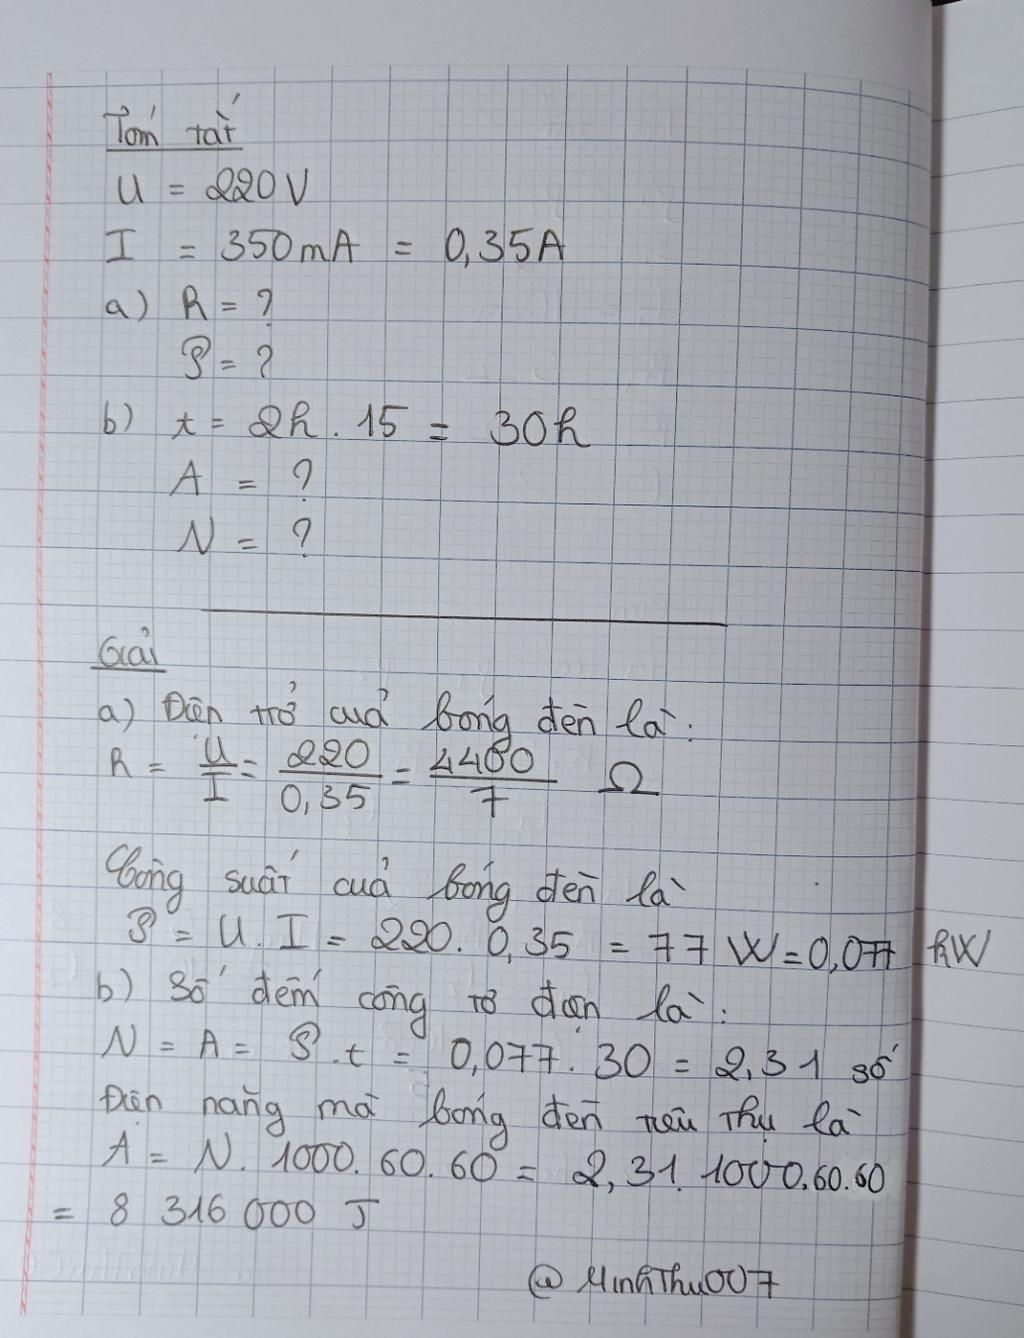 Tóm tắt
U = 220V
I = 350mA = 0,35A
a) R = ?
P = ?
b) t = 2h . 15 = 30h
A = ?
N = ?
Giải
a) Điện trở của bóng đèn là:
R = U/I = 220/0,35 = 4400/7 Ω
Công suất của bóng đèn là
P = U. I = 220. 0,35 = 77 W = 0,077 kW
b) Số đếm công tơ điện là:
N = A = P.t = 0,077. 30 = 2,31 số
Điện năng mà bóng đèn tiêu thụ là
A = N. 1000. 60. 60 = 2,31. 1000.60.60
= 8 316 000 J
@MinhThu007